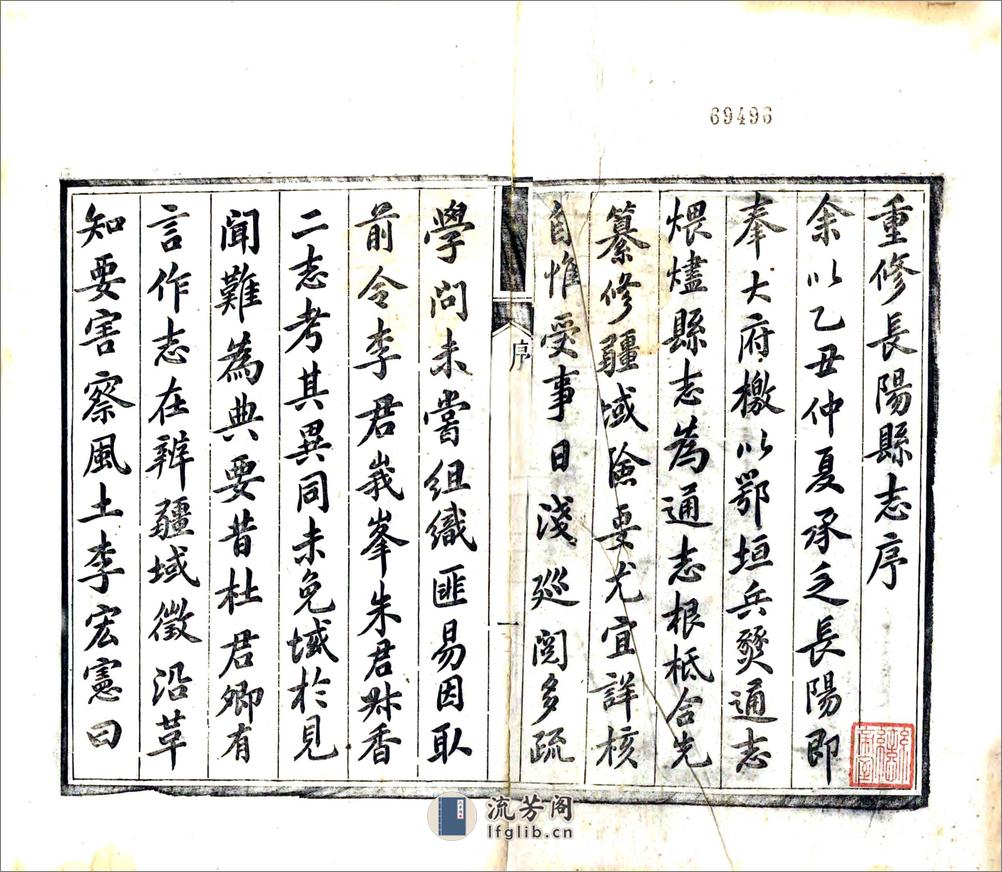 69496
重修長陽縣志序
余以乙丑仲夏承乏長陽即
奉大府檄以鄂垣兵燹通志
煨燼縣志為通志根柢合先
纂修疆域險要尤宜詳核
自惟受事日淺廵閱多疏
序
一
學問未嘗組織匪易因取
前令李君峩峯朱君㭍香
二志考其異同未免域於見
聞難為典要昔杜君卿有
言作志在辨疆域徵沿革
知要害察風土李宏憲曰
流芳阁
lfglib.cn